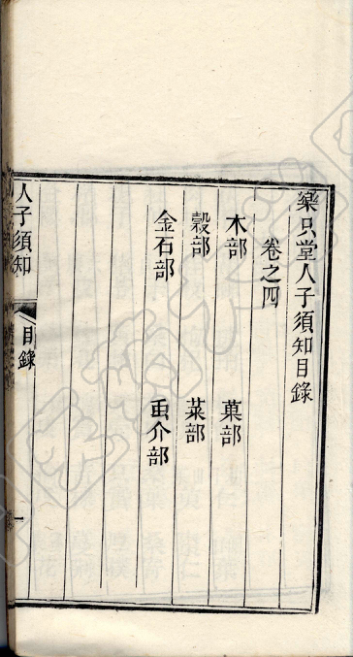 樂只堂人子須知目錄
卷之四
木部　菓部
穀部　菜部
金石部　䖝介部
人子須知　目錄　一